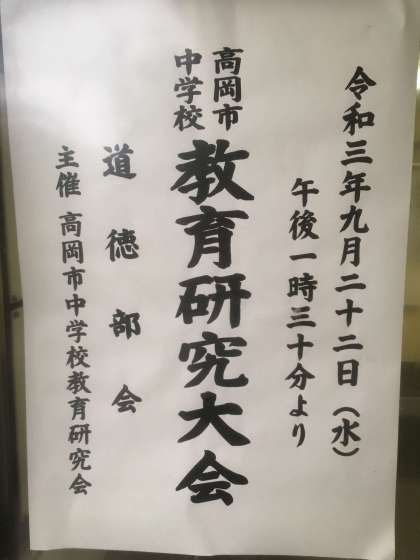 令和三年九月二十二日（水）
午後一時三十分より
高岡市
中学校
教育研究大会
道徳部会
主催 高岡市中学校教育研究会